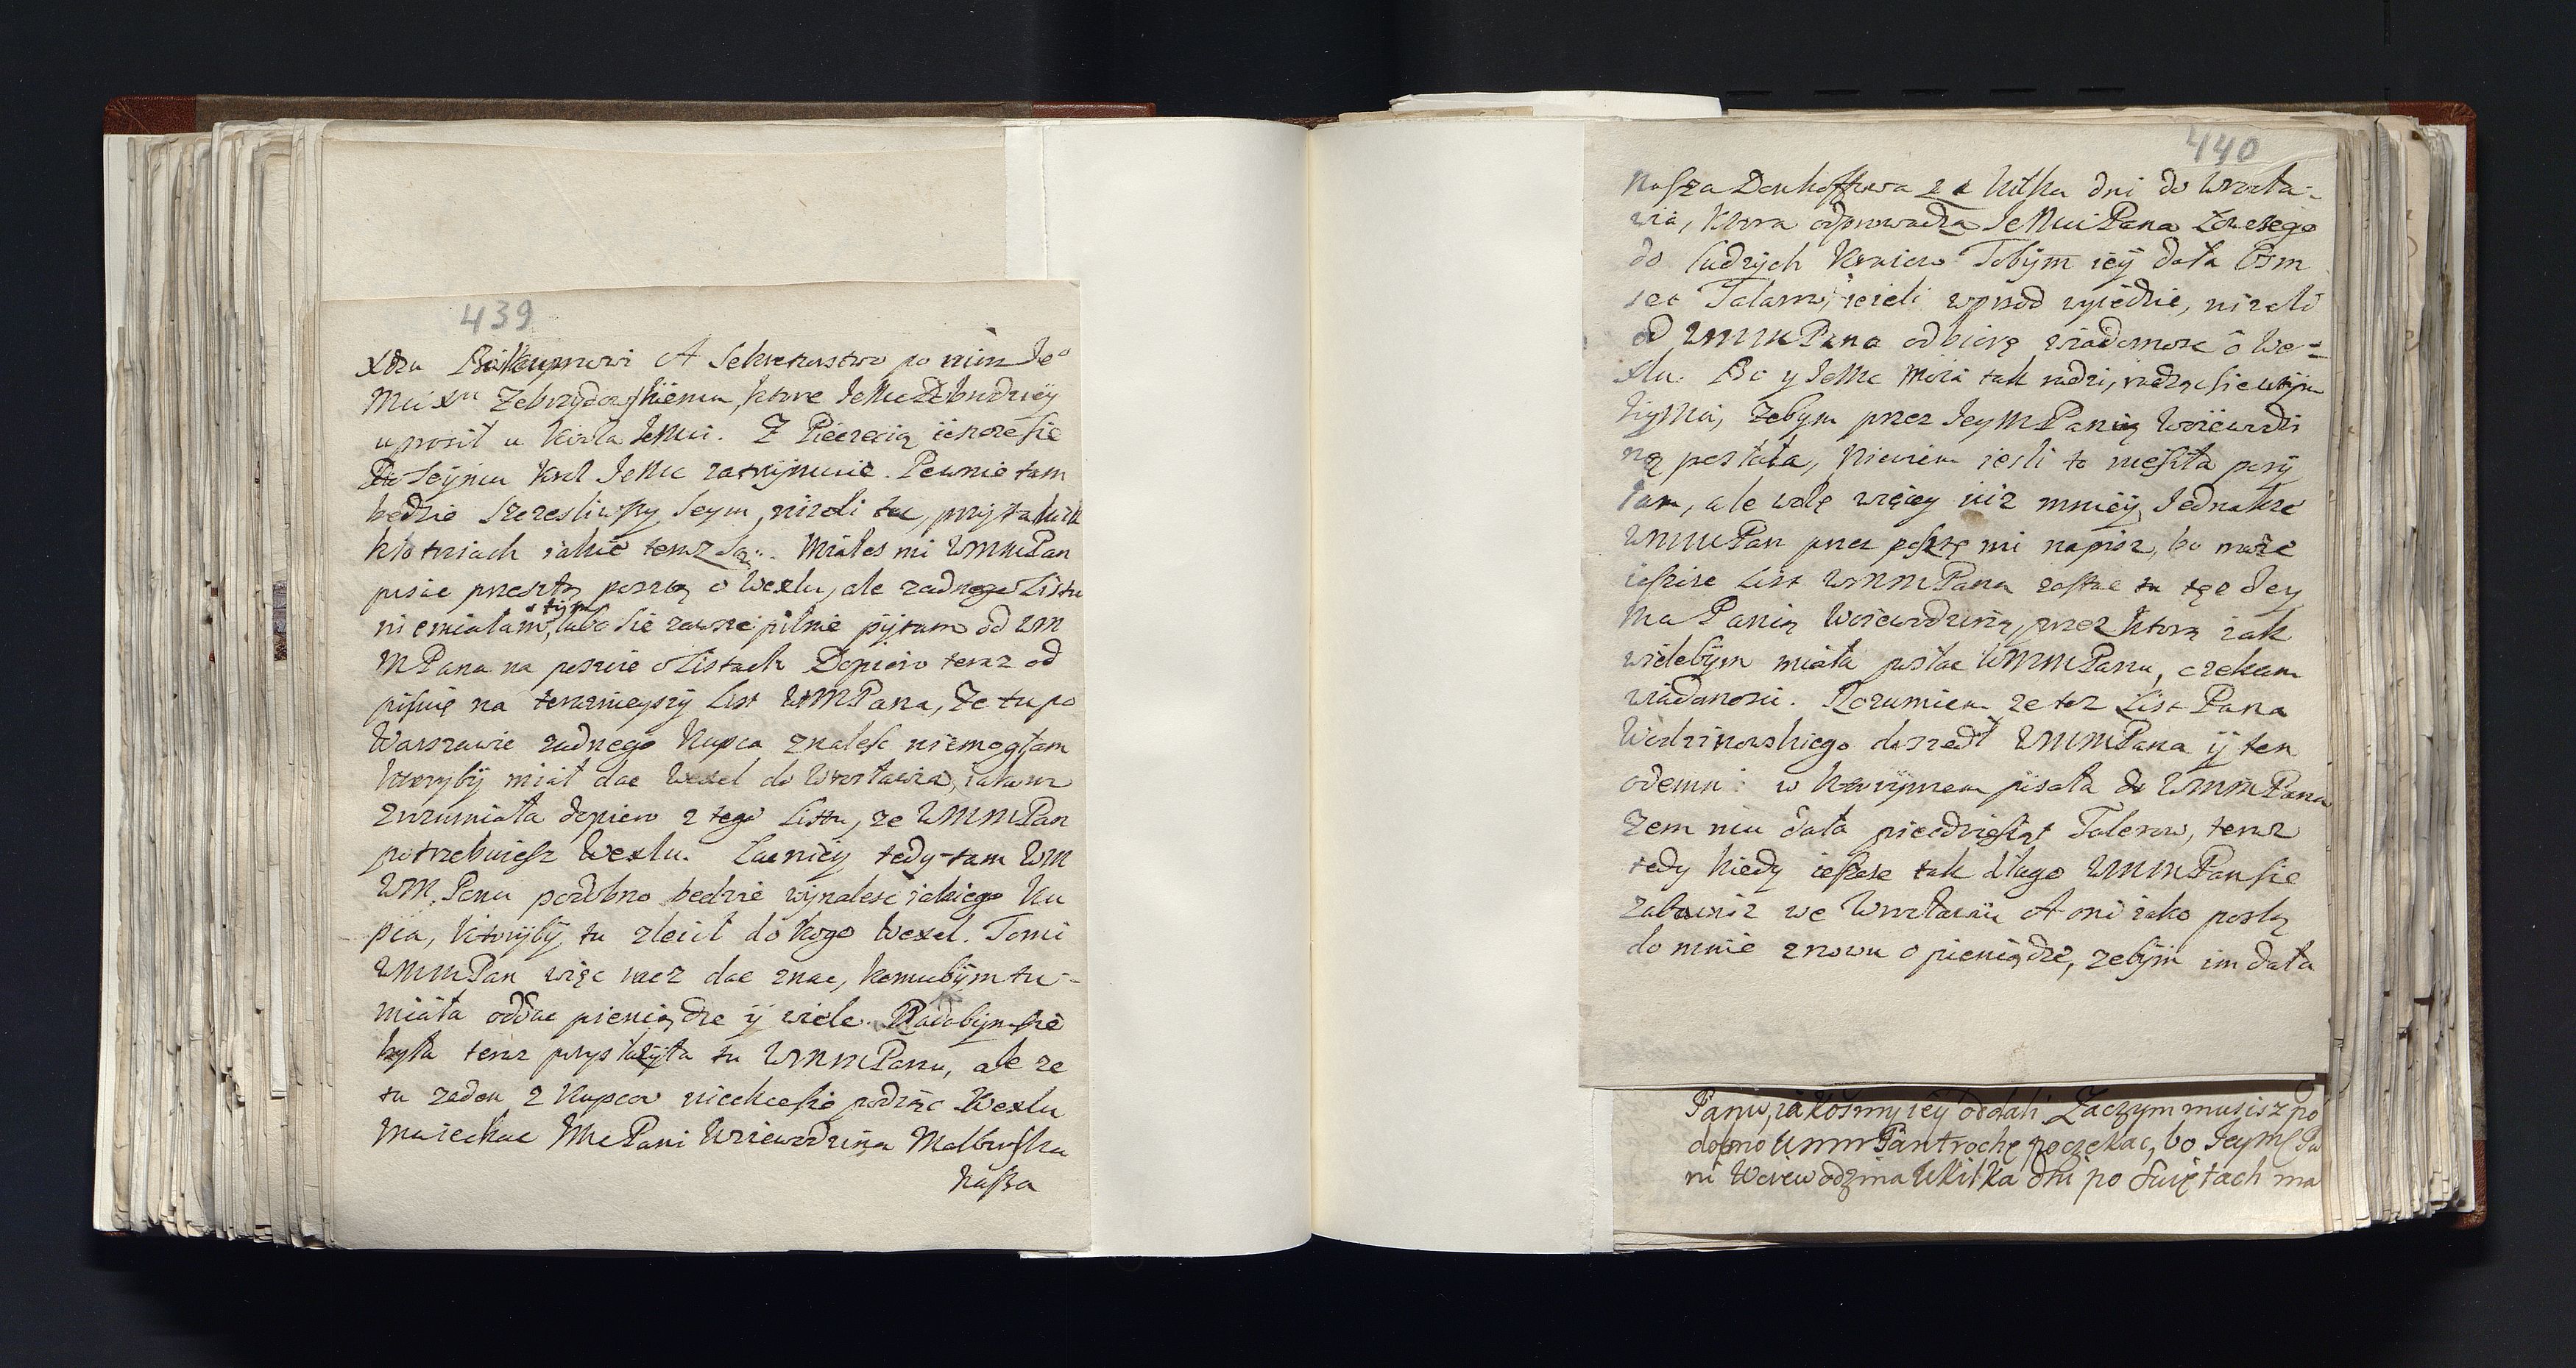 439
Xdzu Biskupowi A Sekretarstwo po nim Jeo
Mci Xu Zebrzydowskiemu, ktore JeMc Zebrudzey
uprosił u Krola JeMci. Z Pieczęcią ieszcze sie
Do Seymu Krol JeMc zatrzymuie. Pewnie tam
będzie szczesliwszy Seym, nizeli tu, przy takich
kłotniach iakie teraz są. Miałes mi WMMPan
pisac przeszłą pocztą o Wexlu, ale zadnego Listu
niemiałam o tym, lubo sie zawsze pilnie pytam od WM
MPana na poczcie o Listach Dopiero teraz od
pisuię na teraznieyszy List WMPana, Ze tu po
Warszawie zadnego Kupca znalesc niemogłam
ktoryby miał dac Wexel do Wrocławia, iakom
zrozumiała dopiero z tego Listu, ze WMMPan
potrzebuiesz Wexlu. Lacniey tedy tam WM
WM. Panu podobno bedzie wynalesc iakiego Ku
pca, ktoryby tu zlecił do kogo Wexel. To mi
WMMPan więc racz dac znac, komubym tu
miała oddac pieniądze y wiele. Radabym sie
była teraz przysłużyła tu WMMPanu, ale ze
tu zaden z Kupcow niechce sie podiąc Wexlu
Ma iechac JMcPani Woiewodzina Malborska
nasza
440
Nasza Denhoffowa za kilka dni do Wrocła-
wia, ktora odprowadza JeMci Pana Łowczego
do Cudzych Kraiow Tobym iey dała Osm
set Talarow, iezeli wprzod wyiedzie, nizeli
od WMMPana odbiorę wiadomosc o We=
xlu. Bo y JeMc moia tak radzi, radząc sie
żebym przez JeyMPanią Woiewodzi
ną posłała, Niewiem iesli to
tam, ale wolę więcey niz mniey, Jednakze
WMMPan przez posztę mi napisz, bo może
ieszcze List WMMPana zastac tu tęz Jey
Mc Panią Woiewodzinę, przez ktorą iak
wielebym miała posłac WMMPanu, czekam
wiadomosci. Rozumiem ze tez List Pana
doszedł WMMPana y ten
odemnie w ktorymem pisała do WMMPana
Zem mu dała piecdziesiąt Talerow, teraz
tedy kiedy ieszcze tak długo WMMPan sie
zabawisz we Wrocławiu A oni iako poslą
do mnie znowu o pieniądze, zebym im dała
Paniu, iakosmy iey oddali Zaczym musisz po
dobno WMMPan trochę poczekac, bo JeyMc Pa
ni Woiewodzina w kilka dni po Swiętach ma